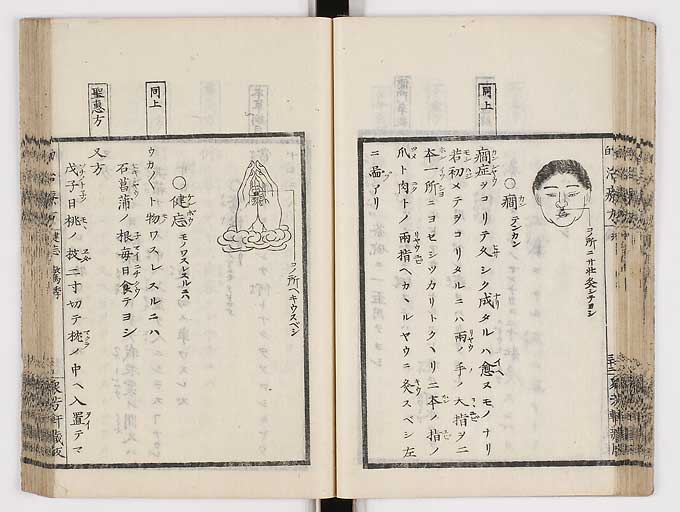 同上
コノ所ニ廿壮灸シテヨシ
○癇 テンカン
癇症ヲコリテ久シク成タルハ愈ヌモノナリ
若初メテヲコリタルニハ兩ノ手ノ大指ヲ二
本一所ニヨセシツカリトクヽリ二本ノ指ノ
爪ト肉トノ兩指ヘカヽルヤウニ灸スベシ左
ニ圖アリ
コノ所ヘキウスベシ
○健忘 モノワスレスルニハ
同上
ウカ〳〵ト物ワスレスルニハ
石菖蒲ノ根毎日食テヨシ
聖惠方
又方
戊子日桃ノ枝二寸切テ枕ノ中ヘ入置テマ
健忘
聚芳軒藏版